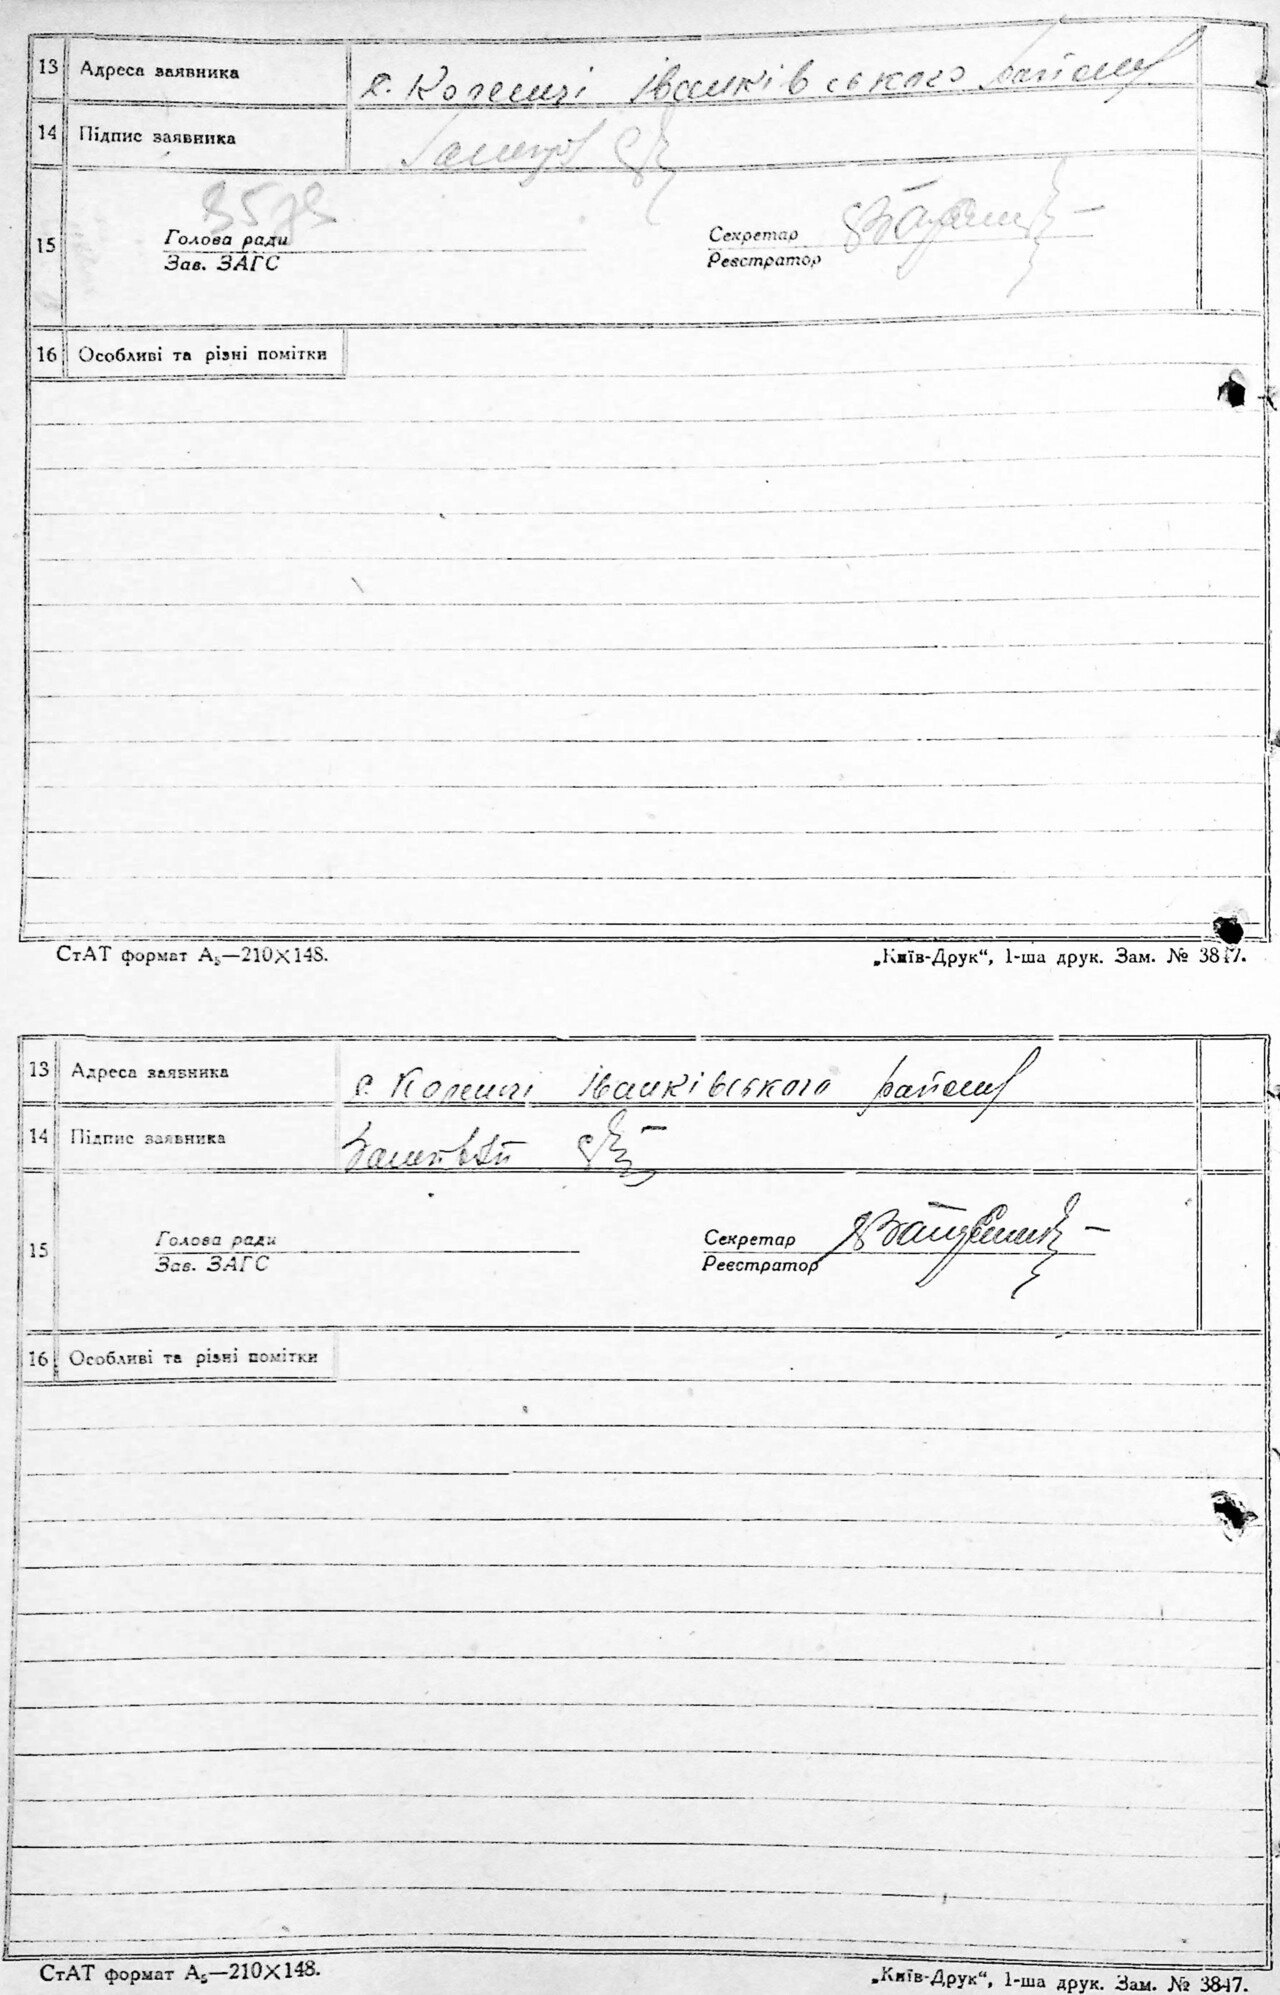 13 Адреса заявника с. Коленці Іванківського району
14 Підпис заявника
15 Голова ради Секретар
Зав. ЗАГС Реєстратор
16 Особливі та різні помітки
СтАТ формат А₅—210×148. „Київ-Друк“, 1-ша друк. Зам. № 3847.
13 Адреса заявника с. Коленці Іванківського району
14 Підпис заявника
15 Голова ради Секретар
Зав. ЗАГС Реєстратор
16 Особливі та різні помітки
СтАТ формат А₅—210×148. „Київ-Друк“, 1-ша друк. Зам. № 3847.